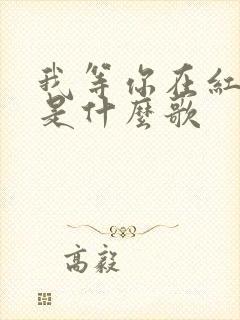 我等你在紅
是什麼歌
高毅